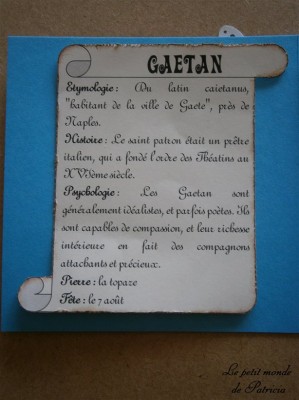 GAETAN
Etymologie : Du latin caietanus,
"habitant de la ville de Gaete", près de
Naples.
Histoire : Le saint patron était un prêtre
italien, qui a fondé l'ordre des Théatins au
XVIème siècle.
Psychologie : Les Gaetan sont
généralement idéalistes, et parfois poètes. Ils
sont capables de compassion, et leur richesse
intérieure en fait des compagnons
attachants et précieux.
Pierre : la topaze
Fête : le 7 août
Le petit monde
de Patricia